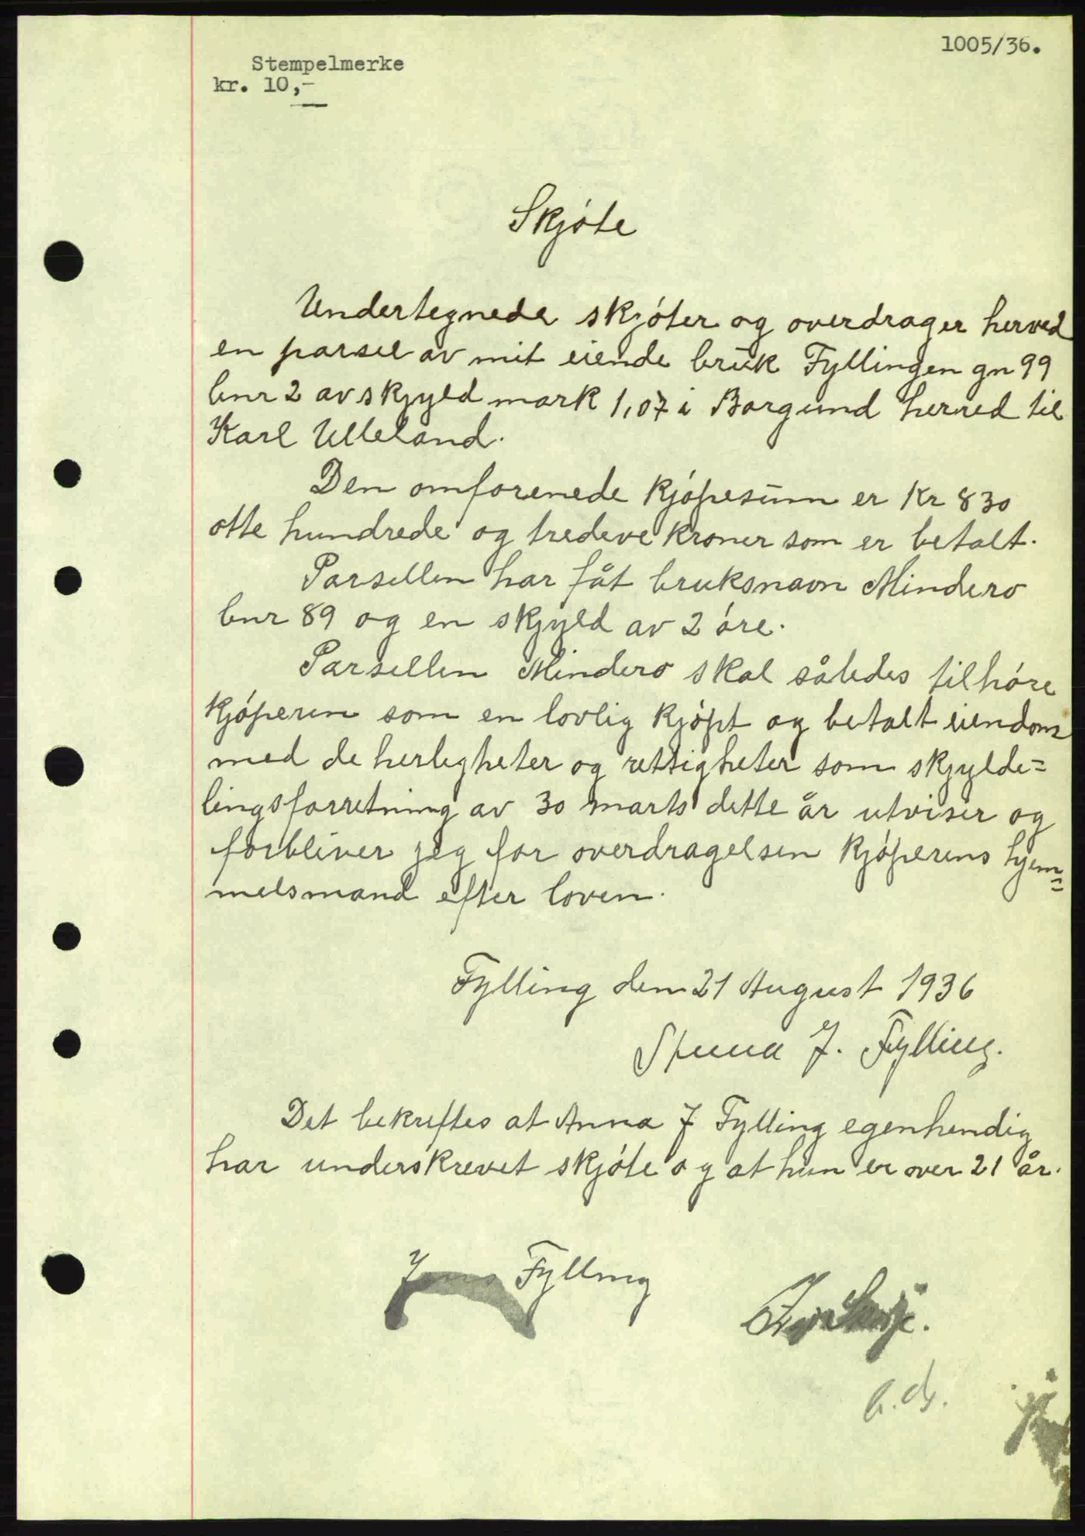 1005/36.
Stempelmerke
kr. 10,-
Skjøte
Undertegnede skjøter og overdrager herved
en parsel av mit eiende bruk Fyllingen gn 99
bnr 2 av skjyld mark 1,07 i Borgund herred til
Karl Ulleland.
Den omforenede kjøpesum er Kr 830
otte hundrede og tredeve kroner som er betalt.
Parsellen har fåt bruksnavn Mindero
bnr 89 og en skjyld av 2 øre.
Parsellen Mindero skal således tilhøre
kjøperen som en lovlig kjøpt og betalt eiendom
med de herligheter og rettigheter som skjylde=
lingsforretning av 30 marts dette år utviser og
forbliver jeg for overdragelsen kjøperens hjem=
melsmand efter loven.
Fylling den 21 August 1936
Anna J. Fylling.
Det bekreftes at Anna J Fylling egenhendig
har underskrevet skjøte og at hun er over 21 år.
Jens Fylling